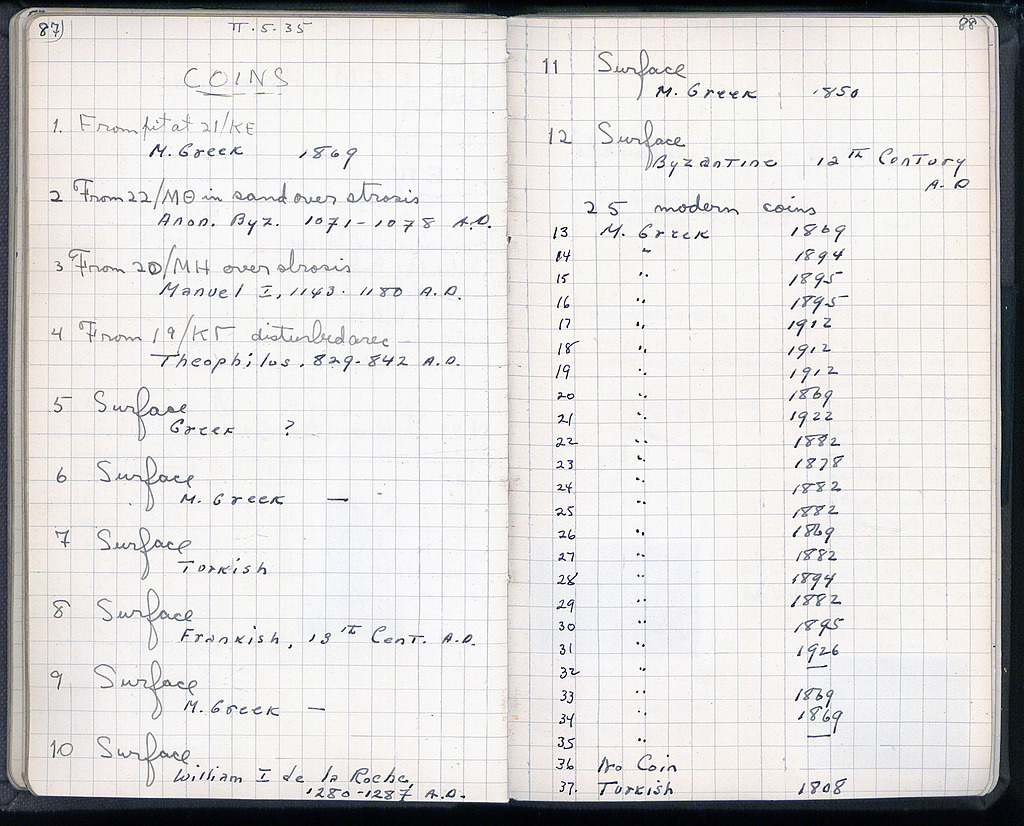 87
II.5.35
COINS
1. From pit at 21/KE
M. Greek 1869
2 From 22/MΘ in sand over strosis
Anon. Byz. 1071-1078 A.D.
3 From 20/MH over strosis
Manuel I, 1143-1180 A.D.
4 From 19/KΓ disturbed area
Theophilus, 829-842 A.D.
5 Surface
Greek ?
6 Surface
M. Greek —
7 Surface
Turkish
8 Surface
Frankish, 13th Cent. A.D.
9 Surface
M. Greek —
10 Surface
William I de la Roche,
1280-1287 A.D.
88
11 Surface
M. Greek 1850
12 Surface
Byzantine 12th Century
A.D
25 modern coins
13 M. Greek 1869
14 " 1894
15 " 1895
16 " 1895
17 " 1912
18 " 1912
19 " 1912
20 " 1869
21 " 1922
22 " 1882
23 " 1878
24 " 1882
25 " 1882
26 " 1869
27 " 1882
28 " 1894
29 " 1882
30 " 1895
31 " 1926
32 " —
33 " 1869
34 " 1869
35 " —
36 No Coin
37. Turkish 1808